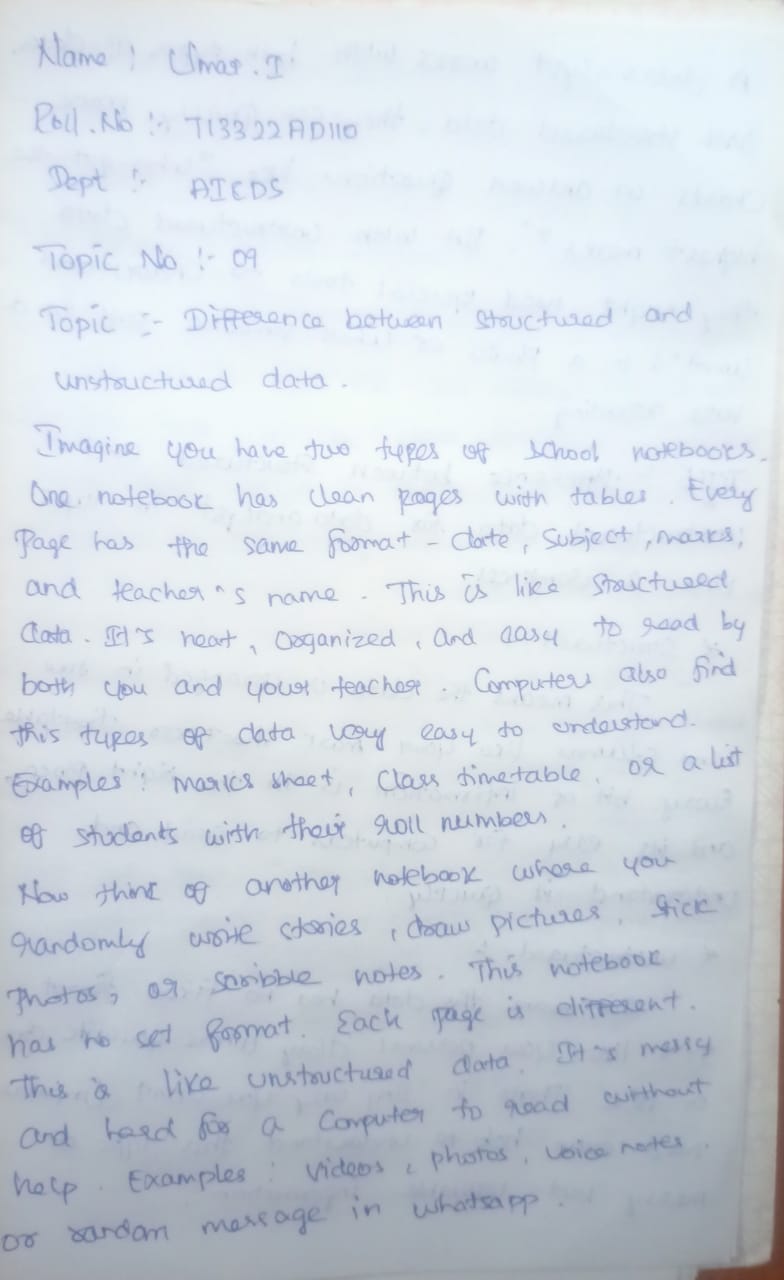 Name : Umar.I
Roll.No :- 713322AD110
Dept :- AICDS
Topic No :- 09
Topic :- Difference between structured and
unstructured data.
Imagine you have two types of school notebooks.
One notebook has clean pages with tables. Every
Page has the same format - date, Subject, marks,
and teacher's name. This is like structured
data. It's neat, organized, and easy to read by
both you and your teacher. Computers also find
this types of data very easy to understand.
Examples : marks sheet, Class timetable, or a list
of students with their roll numbers.
Now think of another notebook where you
randomly write stories, draw pictures, stick
Photos, or scribble notes. This notebook
has no set format. Each page is different.
This is like unstructured data. It's messy
and hard for a Computer to read without
help. Examples : Videos, photos, voice notes,
or randam message in whatsapp.